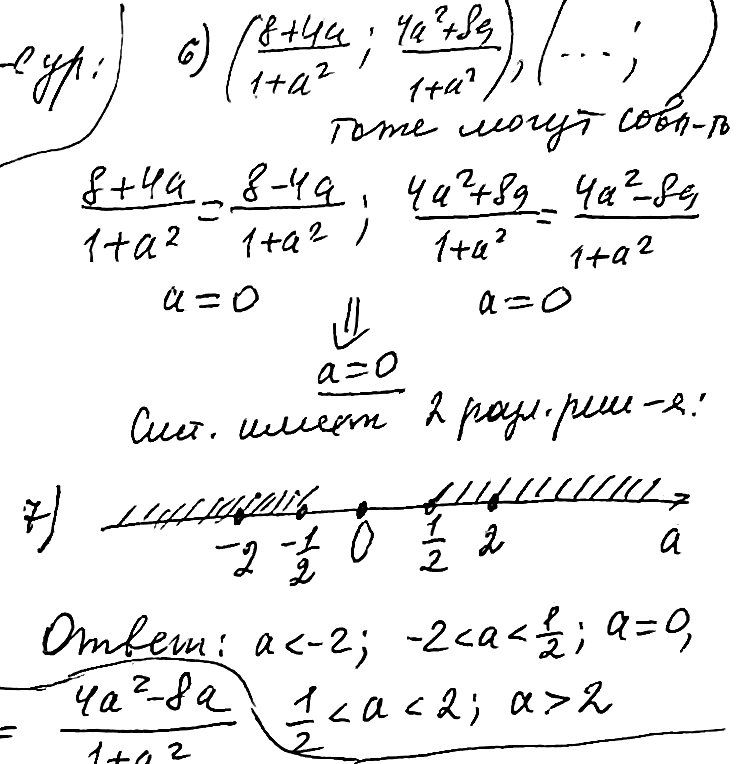 -е ур:
6) ((8+4a)/(1+a²); (4a²+8a)/(1+a²)), (...;
тоже могут совп-ть
(8+4a)/(1+a²) = (8-4a)/(1+a²); (4a²+8a)/(1+a²) = (4a²-8a)/(1+a²)
a=0 ⇓ a=0
a=0
Сист. имеет 2 разл. реш-я:
7) -2 -1/2 0 1/2 2 a
Ответ: a<-2; -2<a<1/2; a=0,
1/2<a<2; a>2
= (4a²-8a)/(1+a²)